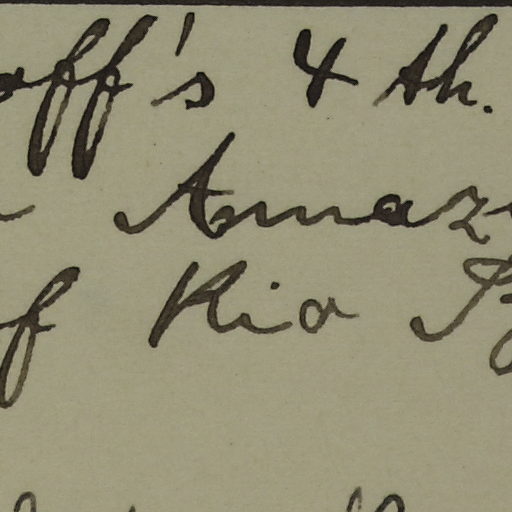 off's 4th.
Amaz
f Rio